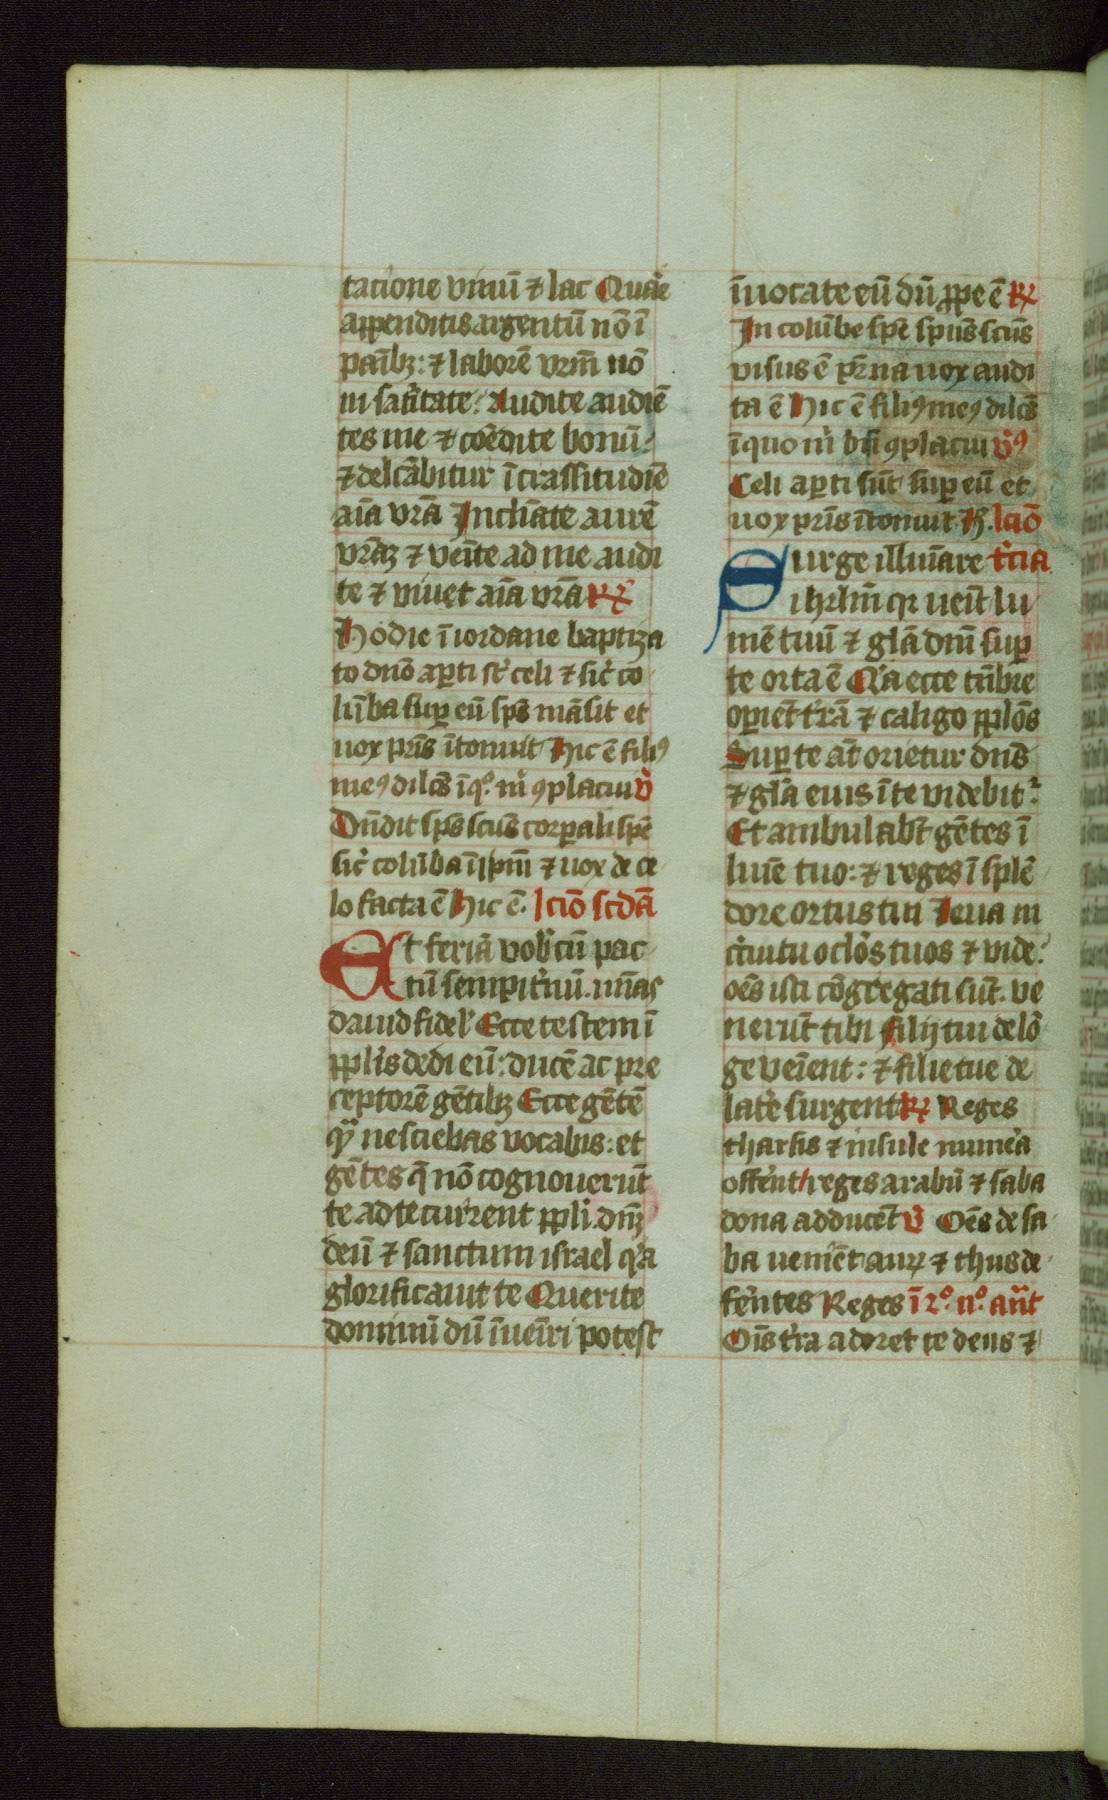 tacione vinū ⁊ lac Quare
appenditis argentū nō ī
panibꝫ: ⁊ laborē vrm̄ nō
in saturitate. Audite audiē
tes me ⁊ comedite bonū
⁊ delcābitur ī crassitudiē
aīa vrā Inclinate aurē
vrāꝫ ⁊ venite ad me audi
te ⁊ viuet aīa vrā RX
Hodie ī iordane baptiza
to dnō aꝑti st̄ celi ⁊ sic̄ co
lūba suꝑ eū sps̄ māsit et
uox pris̄ ītonuit Hic ē filiꝰ
meꝰ dilcs̄ īqº. m̄ ꝯplacui V̄
Dn̄dit sps̄ scūs corꝑali spē
sic̄ colūba ī ip̄m ⁊ uox de ce
lo facta ē Hic ē. lcīo scdā
Et feriā vobcū pac
tū sempit̄nū. mīas
dauid fidel̓ Ecce testem ī
ppl̓is dedi eū: ducē ac pre
ceptorē gētibꝫ Ecce gētē
qͣ nesciebas vocabis: et
gētes q̄ nō cognouerūt
te ad te current ppl̓i. dm̄
deū ⁊ sanctum israel q̓a
glorificauit te Querite
dominū dū īueīri potest
īuocate eū dū ꝓpe ē RX
In colūbe spē spūs scūs
visus ē pr̄na uox audi
ta ē Hic ē filiꝰ meꝰ dilcs̄
īquo m̄ bn̄ ꝯplacui Vꝰ
Celi aꝑti sūt suꝑ eū et
uox pris̄ ītonuit H. lcīo
Surge illuīare t̄cia
ihrl̄m qr uenit lu
mē tuū ⁊ glā dm̄ suꝑ
te orta ē Q̓a ecce tn̄bre
oꝑiet t̄rā ⁊ caligo pplōs
Suꝑ te āt orietur dns̄
⁊ glā eius ī te videbit̓
Et ambulabt̄ gētes ī
luīe tuo: ⁊ reges ī splē
dore ortus tui Leua in
circuitu ocl̓os tuos ⁊ vide:
oēs isti cōgregati sūt. ve
nerūt tibi filij tui de lō
ge veīent: ⁊ filie tue de
late̓ surgent RX Reges
tharsis ⁊ insule nume̓a
offe̓nt reges arabū ⁊ saba
dona adducēt V̄ Oēs de sa
ba ueniēt aurꝫ ⁊ thus de
fe̓ntes Reges ī 2º. nº. an̄t
Oīs t̓ra adoret te deus ⁊